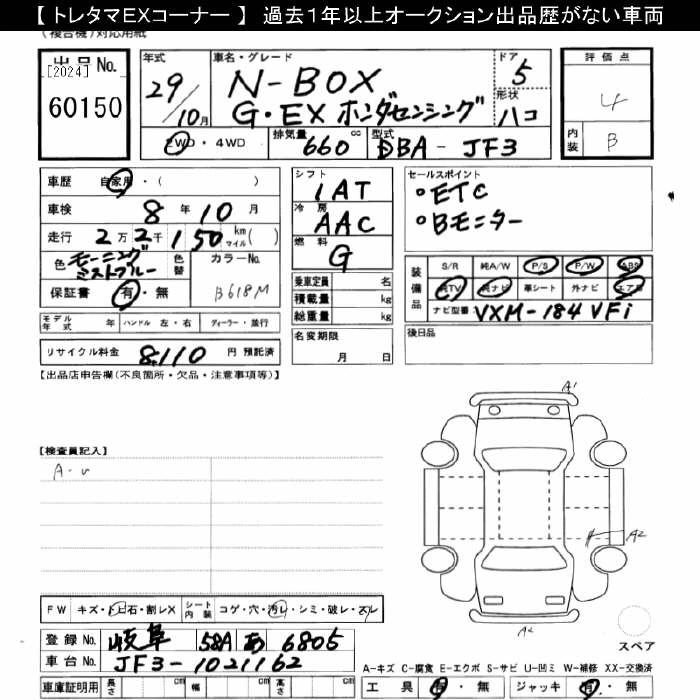 【 トレタマEXコーナー 】 過去１年以上オークション出品歴がない車両
(複合機)対応用紙
出品No.
[2024]
60150
年式
29/10月
車名・グレード
N-BOX
G・EX ホンダセンシング
ドア
5
形状
ハコ
2WD・4WD
排気量
660 cc
型式
DBA-JF3
評価点
4
内装
B
車歴 自家用・( )
車検 8年10月
走行 2万2千150 km マイル( )
色 モーニングミストブルー
色替
カラーNo.
B618M
保証書 有・無
モデル年式 年 ハンドル 左・右 ディーラー・並行
リサイクル料金 8,110 円 預託済
シフト
1AT
冷房
AAC
燃料
G
乗車定員 名
積載量 kg
総重量 kg
名変期限
月 日
セールスポイント
・ETC
・Bモニター
装備品
S/R 純A/W P/S P/W ABS
純TV 純ナビ 革シート 外ナビ エアB
ナビ型番 VXM-184VFi
後日品
【出品店申告欄(不良箇所・欠品・注意事項等)】
【検査員記入】
A-U
A1
A2
A2
スペア
FW キズ・トビ石・割レX
シート内装 コゲ・穴・汚レ・シミ・破レ・スレ
登録No. 岐阜 58A あ 6805
車台No. JF3-1021162
車庫証明用 長さ cm 幅 cm 高さ cm
A-キズ C-腐食 E-エクボ S-サビ U-凹ミ W-補修 XX-交換済
工具 有・無 ジャッキ 有・無